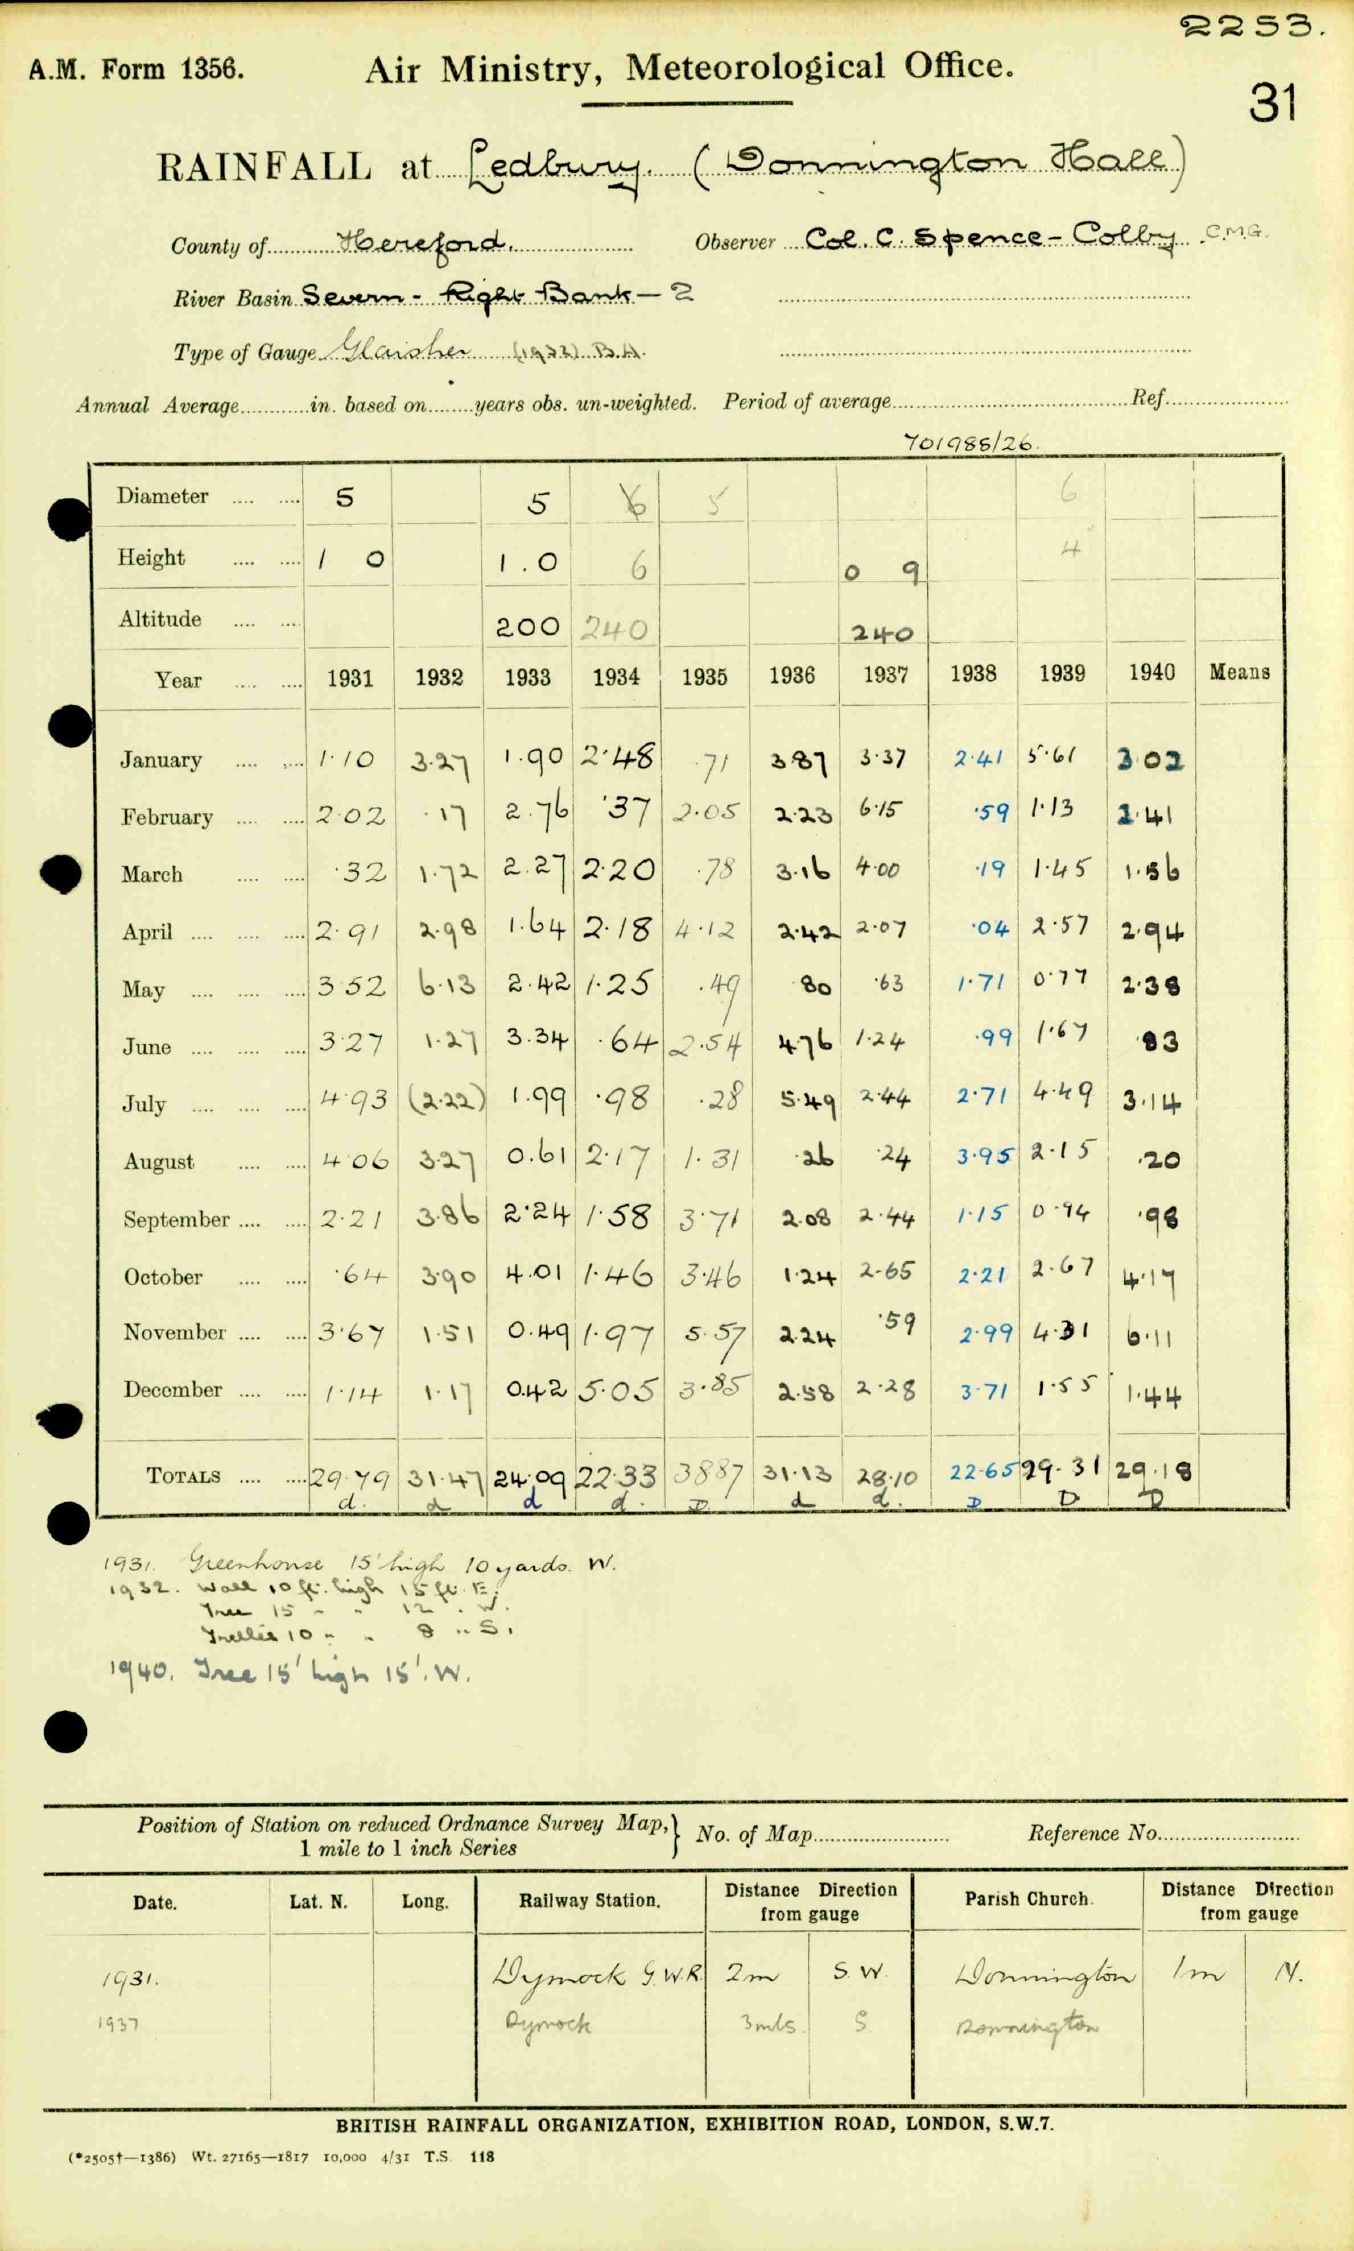 2253.
A.M. Form 1356. Air Ministry, Meteorological Office.
31
RAINFALL at Ledbury. (Donnington Hall)
County of Hereford. Observer Col. C. Spence-Colby C.M.G.
River Basin Severn - Right Bank - 2
Type of Gauge Glaisher (1932) B.H.
Annual Average............in. based on........years obs. un-weighted. Period of average.......... Ref..........
701988/26.
Diameter .... .... 5 5 6 5 6
Height .... .... 1 0 1.0 6 0 9 4
Altitude .... .... 200 240 240
Year .... .... 1931 1932 1933 1934 1935 1936 1937 1938 1939 1940 Means
January .... .... 1·10 3·27 1.90 2·48 ·71 3 87 3·37 2·41 5·61 3·02
February .... .... 2·02 ·17 2.76 ·37 2·05 2·23 6·15 ·59 1·13 2·41
March .... .... ·32 1·72 2.27 2·20 ·78 3·16 4·00 ·19 1·45 1·56
April .... .... .... 2·91 2·98 1·64 2·18 4·12 2·42 2·07 ·04 2·57 2·94
May .... .... .... 3 52 6·13 2·42 1·25 ·49 80 ·63 1·71 0·77 2·38
June .... .... .... 3·27 1·27 3.34 ·64 2·54 4·76 1·24 ·99 1·67 ·83
July .... .... .... 4·93 (2·22) 1.99 ·98 ·28 5·49 2·44 2·71 4·49 3·14
August .... .... 4 06 3·27 0.61 2·17 1·31 ·26 ·24 3·95 2·15 ·20
September .... .... 2·21 3·86 2·24 1·58 3·71 2·08 2·44 1·15 0·94 ·98
October .... .... ·64 3·90 4.01 1·46 3·46 1·24 2·65 2·21 2·67 4·17
November .... .... 3·67 1·51 0.49 1·97 5·57 2·24 ·59 2·99 4·31 6·11
December .... .... 1·14 1·17 0.42 5·05 3·85 2·58 2·28 3·71 1·55 1·44
TOTALS .... .... 29·79 31·47 24.09 22·33 3887 31·13 28·10 22·65 29·31 29·18
d. d d d. D d d. D D D
1931. Greenhouse 15' high 10 yards. W.
1932. Wall 10 ft. high 15 ft. E.
Tree 15 " " 12 " W.
Trellis 10 " " 8 " S.
1940. Tree 15' high 15'. W.
Position of Station on reduced Ordnance Survey Map,} No. of Map.......... Reference No..........
1 mile to 1 inch Series
Date. Lat. N. Long. Railway Station. Distance Direction from gauge Parish Church. Distance Direction from gauge
1931. Dymock G.W.R. 2m S.W. Donnington 1m N.
1937 Dymock 3mls S Donnington
BRITISH RAINFALL ORGANIZATION, EXHIBITION ROAD, LONDON, S.W.7.
(*2505†—1386) Wt. 27165—1817 10,000 4/31 T.S. 118